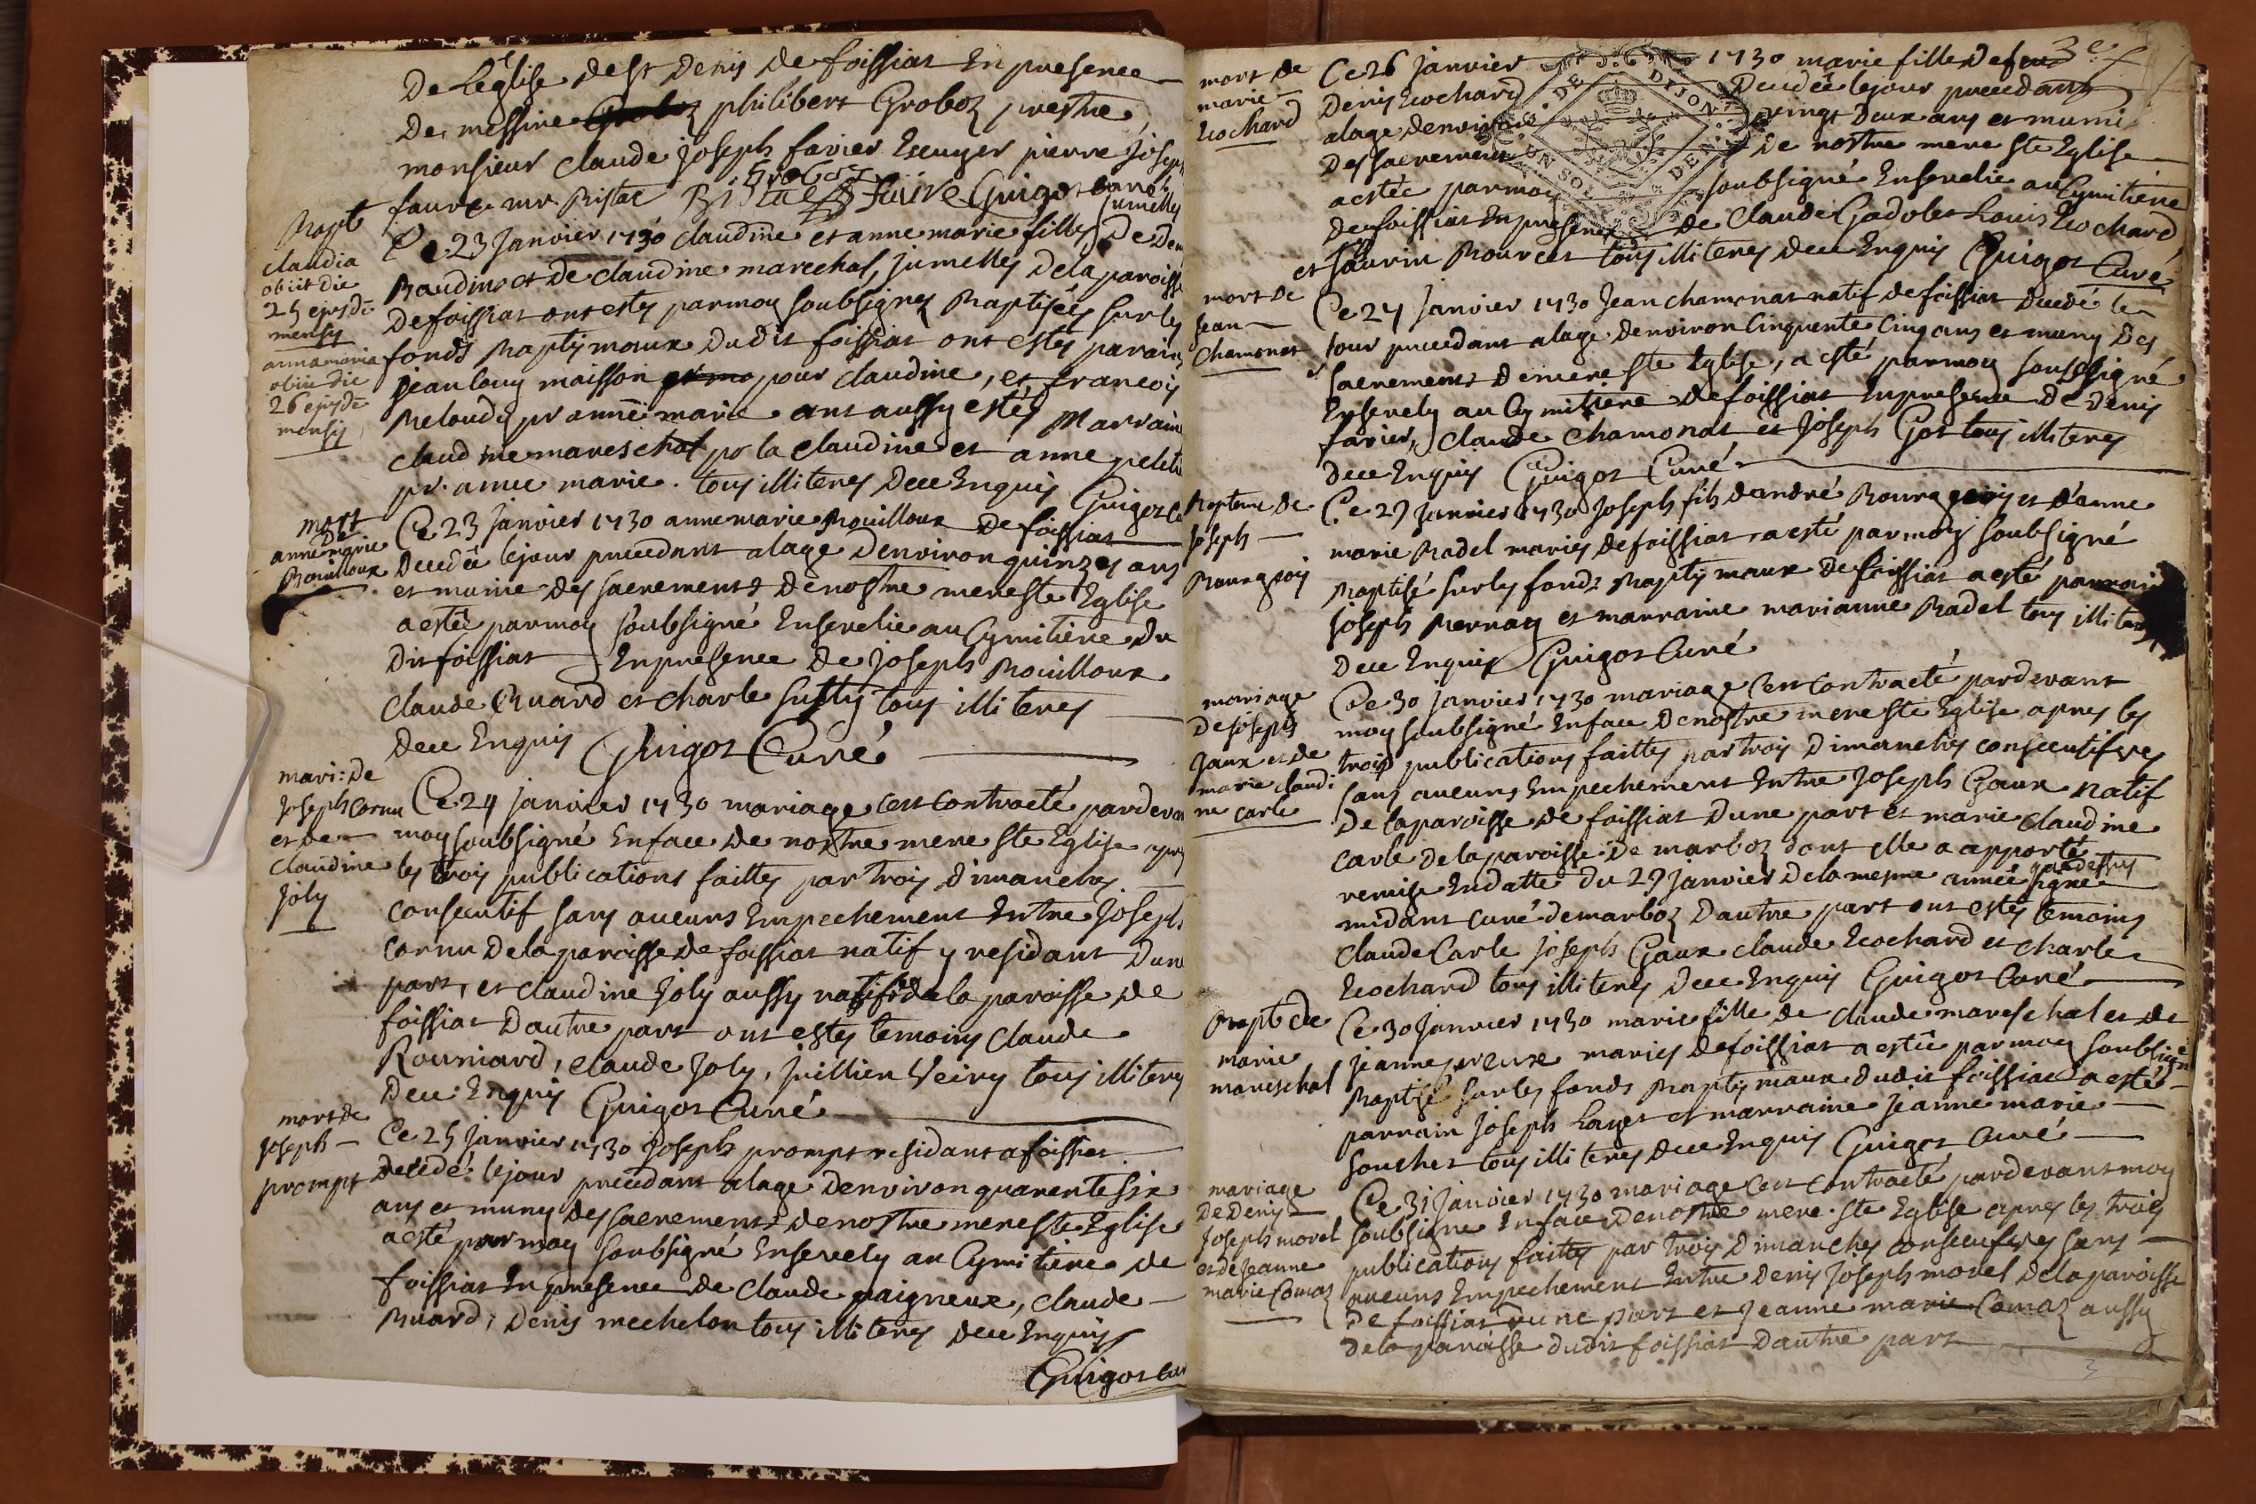 De Leglise de st Denis de foissiat En presence
De messire Groboz philibert Groboz prestre
monsieur claude joseph favier Escuyer pierre joseph
faure mr Bistac Groboz faivre Guigot Curé
jumelles
Bapt
claudia
obiit die
25 ejusdē
mensis
anna maria
obiit die
26 ejusdē
mensis
Ce 23 janvier 1730 claudine et anne marie filles De Den
Baudin et de claudine marechal, jumelles de la paroisse
De foissiat ont estes par moy soubsignez Baptisées sur les
fonds Baptismaux dudit foissiat ont estes parain
jean louy maisson pour claudine, et francois
pr anne marie ont aussy estés Marrain
claudine mareschal pr la claudine et anne
pr anne marie. tous illiteres de ce Enquis Guigot Cu
mort
De
anne marie
Bouilloux
Ce 23 janvier 1730 anne marie Bouilloux De foissiat
Decedée le jour precedant a lage denviron quinzes ans
et munie des sacrements de nostre mere ste Eglise
a estée par moy soubsigné Ensevelie au Cymitiere Du
Dit foissiat En presence De joseph Bouilloux
claude Buard et charle tous illiteres
De ce Enquis Guigot Curé
mari: De
joseph Cornu
et de
claudine
joly
Ce 24 janvier 1730 mariage cest contracté pardevan
moy soubsigné En face De nostre mere ste Eglise apres
les trois publications faittes par trois dimanches
consecutif sans aucuns Empechement Entre Joseph
cornu De la paroisse de foissiat natif y residant Dune
part, et claudine joly aussy natifve de la paroisse de
foissiat Dautre part ont estes temoins claude
claude joly, jullien Veiry tous illiteres
De ce Enquis Guigot Curé
mort de
joseph
prompt
Ce 25 janvier 1730 joseph prompt residant a foissiat
Decedé le jour precedant a lage Denviron quarente six
ans et muny des sacrements de nostre mere ste Eglise
a esté par moy soubsigné Ensevely au Cymitiere de
foissiat En presence de claude paigneux, claude
Buard, Denis mechelon tous illiteres de ce Enquis
Guigot Cur
3e f
mort de
marie
Ecochard
Ce 26 janvier 1730 marie fille De feu
Denis Ecochard Decedée le jour precedant
a lage denviron vingt Deux ans et munie
Des sacrement De nostre mere ste Eglise
a estée par moy soubsigné Ensevelie au Cymitiere
De foissiat En presence de claude Gadolet Louis Ecochard
et saurin Bourcet tous illiteres de ce Enquis Guigot Curé
G. DE DIJON
UN SOL DEN.
mort de
jean
Chamonat
Ce 27 janvier 1730 jean chamonat natif de foissiat Decedé le
jour precedant a lage denviron Cinquente Cinq ans et muny Des
sacrements De mere ste Eglise, a esté par moy soussigné
Ensevely au Cymitiere de foissiat En presence De Denis
favier, claude chamonat et joseph Got tous illiteres
De ce Enquis Guigot Curé
Bapteme de
joseph
Bourgeois
Ce 29 janvier 1730 joseph fils dandré Bourgeois et danne
marie Radel mariés de foissiat a esté par moy soubsigné
Baptisé sur les fonds Baptismaux de foissiat a esté parrain
joseph et marraine marianne Radel tous illiteres
De ce Enquis Guigot Curé
mariage
De joseph
Gaux et de
marie claudi
ne carle
Ce 30 janvier 1730 mariage cest contracté pardevant
moy soubsigné En face De nostre mere ste Eglise apres les
trois publications faittes par trois Dimanches consecutifves
sans aucuns Empechement Entre Joseph Gaux natif
De la paroisse de foissiat Dune part et marie claudine
carle de la paroisse De marboz dont elle a apporté
remise En datte Du 29 janvier De la mesme année signé
midant curé de marboz Dautre part ont estes temoins
claude Carle joseph Gaux claude Ecochard et charle
Ecochard tous illiteres De ce Enquis Guigot Curé
Bapt de
marie
mareschal
Ce 30 janvier 1730 marie fille de claude mareschal et de
jeanne mariés de foissiat a estée par moy soubsigné
Baptisé sur les fonds Baptismaux dudit foissiat a esté
parrain joseph et marraine jeanne marie
souchet tous illiteres De ce Enquis Guigot Curé
mariage
De Denis
joseph morel
et de jeanne
marie Comaz
Ce 31 janvier 1730 mariage cest contracté pardevant moy
soubsigne En face De nostre mere ste Eglise apres les trois
publications faittes par trois Dimanches consecutifves sans
aucuns Empechement Entre Denis joseph morel De la paroisse
De foissiat Dune part et jeanne marie Comaz aussy
de la paroisse dudit foissiat Dautre part
3